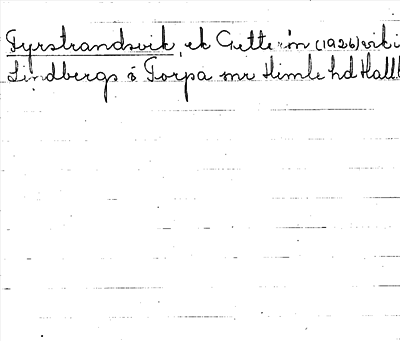 Fyrstrandsvik, ek Getterön (1926) vik i
Lindbergs o Torpa snr Himle hd Hall